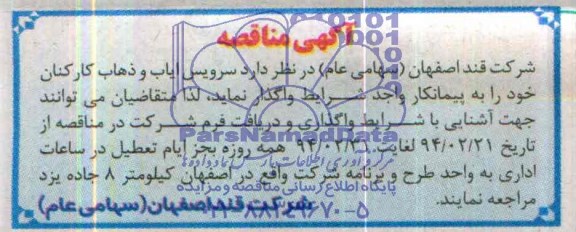 آگهی مناقصه
شرکت قند اصفهان (سهامی عام) در نظر دارد سرویس ایاب و ذهاب کارکنان
خود را به پیمانکار واجد شرایط واگذار نماید، لذا متقاضیان می توانند
جهت آشنایی با شرایط واگذاری و دریافت فرم شرکت در مناقصه از
تاریخ ۹۴/۰۲/۲۱ لغایت ۹۴/۰۲/ همه روزه بجز ایام تعطیل در ساعات
اداری به واحد طرح و برنامه شرکت واقع در اصفهان کیلومتر ۸ جاده یزد
مراجعه نمایند.
شرکت قند اصفهان (سهامی عام)
ParsNamadData
پایگاه اطلاع رسانی مناقصه و مزایده
۰۲۱-۸۸۳۴۹۶۷۰-۵